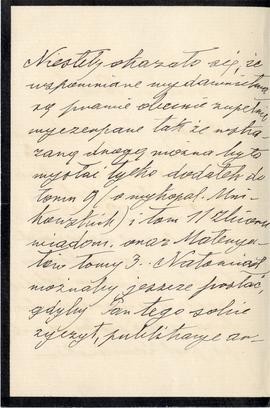 Niestety okazało się, że
wspomniane wydawnictwa
są prawie obecnie zupełnie
wyczerpane tak że wska
zaną drogą można było
wysłać tylko dodatek do
tomu 9 (o wykopal. Mni-
kowskich) i tom 11 Zbioru
wiadom. oraz Materya-
łów tomy 3. Natomiast
możnaby jeszcze posłać,
gdyby Pan tego sobie
życzył, publikacye an-